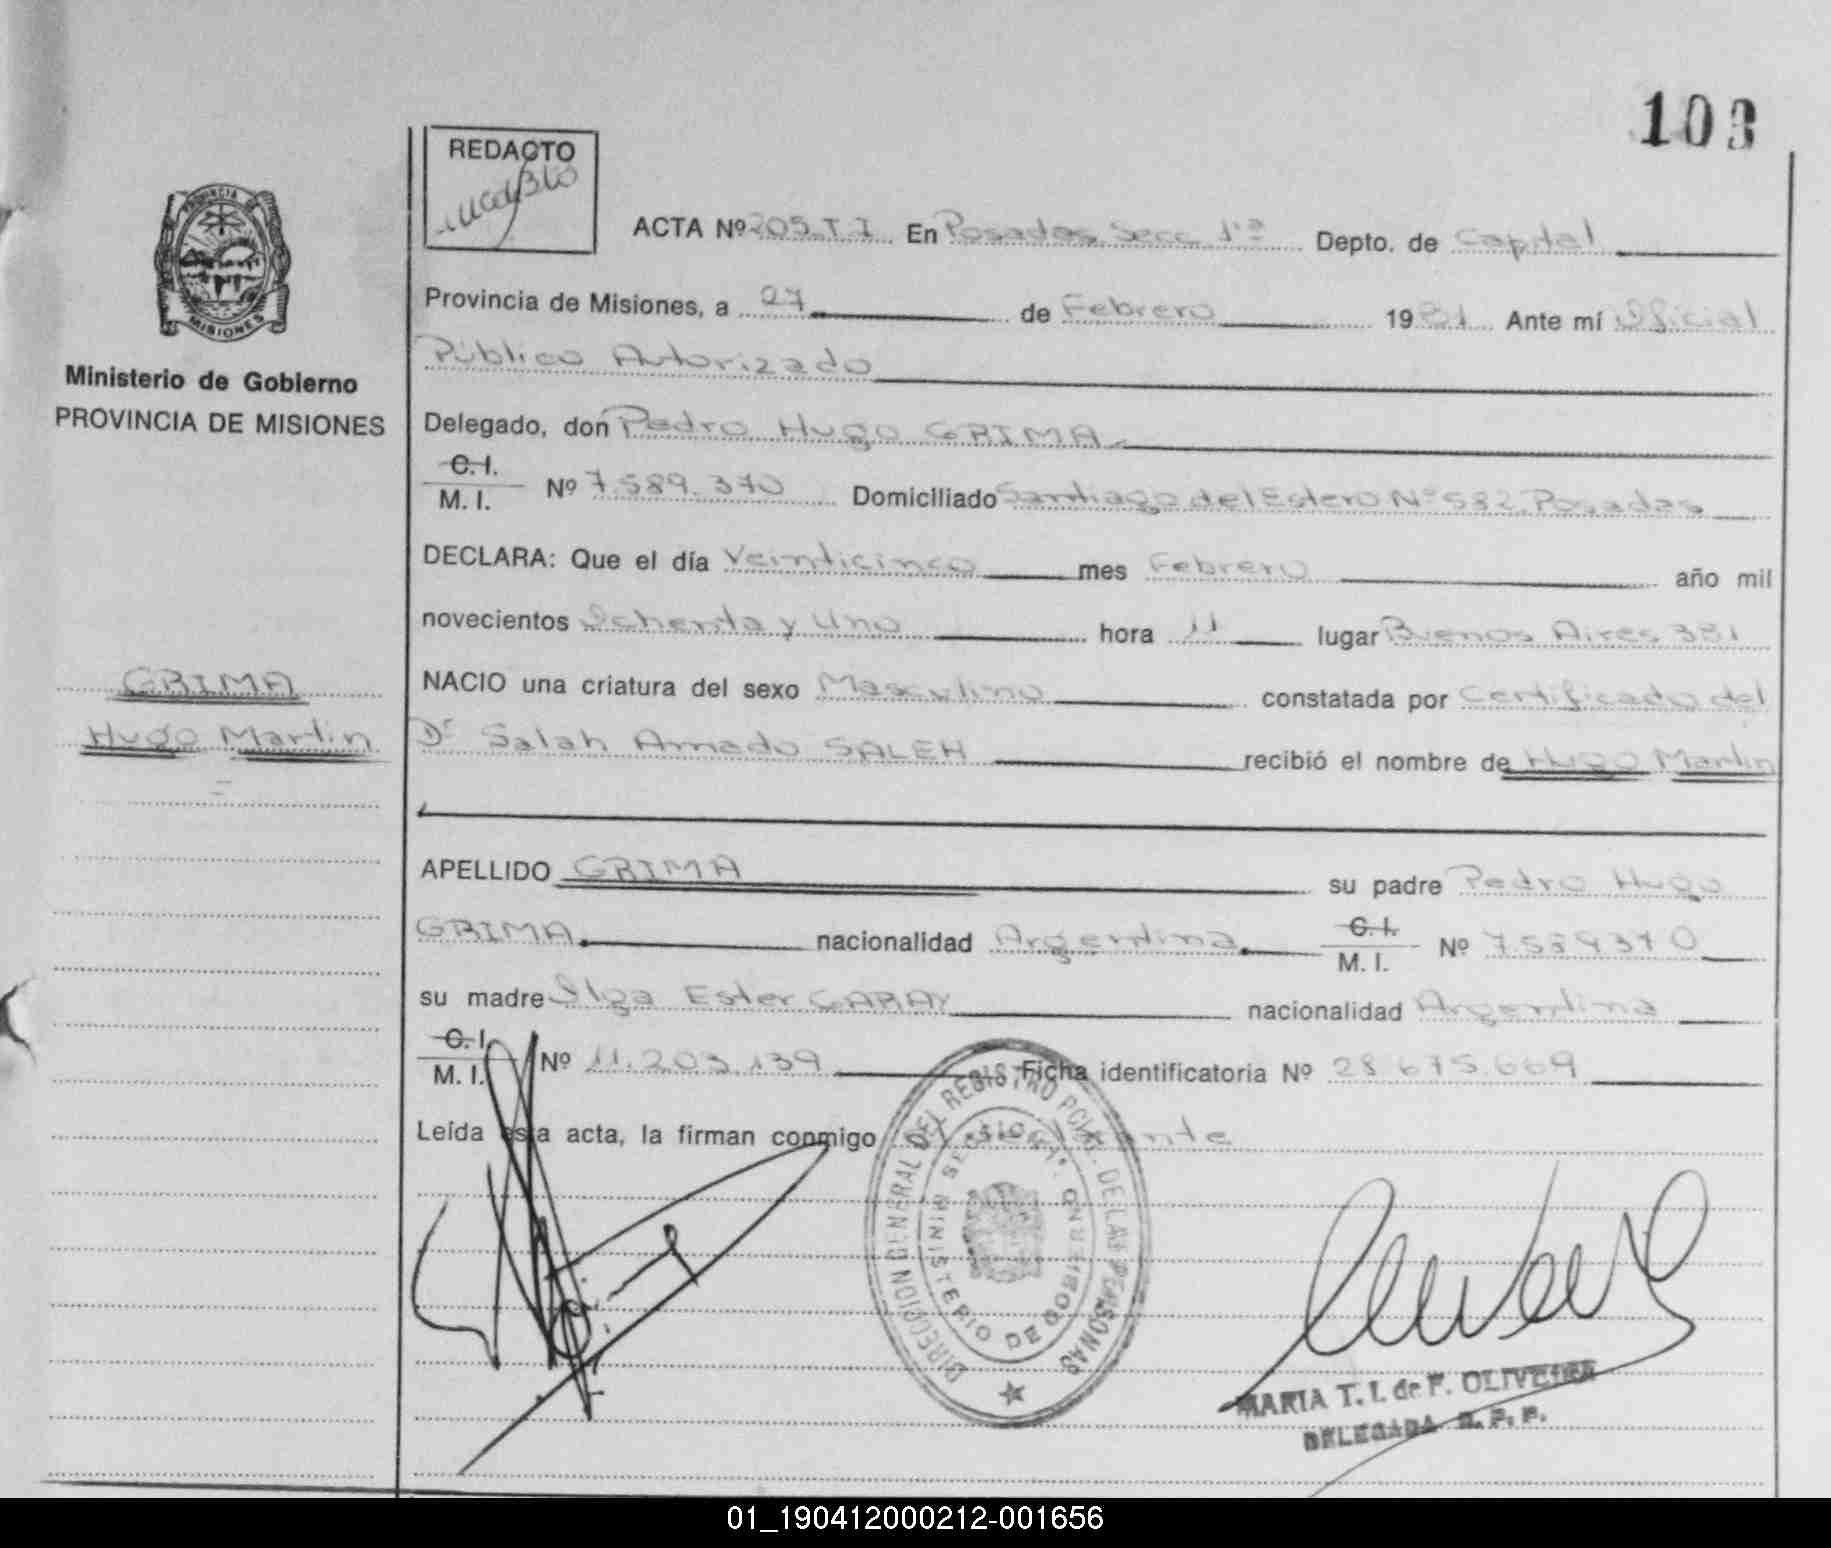 103
REDACTO
ACTA Nº 205 T I En Posadas Secc 1ª Depto. de Capital
Provincia de Misiones, a 27 de Febrero 1981 Ante mí Oficial
Público Autorizado
Delegado, don Pedro Hugo GRIMA
C. I.
M. I. Nº 7.589.370 Domiciliado Santiago del Estero Nº 582 Posadas
DECLARA: Que el día Veinticinco mes Febrero año mil
novecientos Ochenta y Uno hora 11 lugar Buenos Aires 381
NACIO una criatura del sexo Masculino constatada por Certificado del
Dr Salah Amado SALEH recibió el nombre de Hugo Martin
APELLIDO GRIMA su padre Pedro Hugo
GRIMA nacionalidad Argentina C. I.
M. I. Nº 7.589370
su madre Olga Ester GARAY nacionalidad Argentina
C. I.
M. I. Nº 11.203.139 Ficha identificatoria Nº 28.675.669
Leída esta acta, la firman conmigo
PROVINCIA DE
MISIONES
Ministerio de Gobierno
PROVINCIA DE MISIONES
GRIMA
Hugo Martin
DIRECCION GENERAL DEL REGISTRO PCIAL. DE LAS PERSONAS
MINISTERIO DE GOBIERNO
MARIA T. I. de F. OLIVEIRA
DELEGADA R. P. P.
01_190412000212-001656